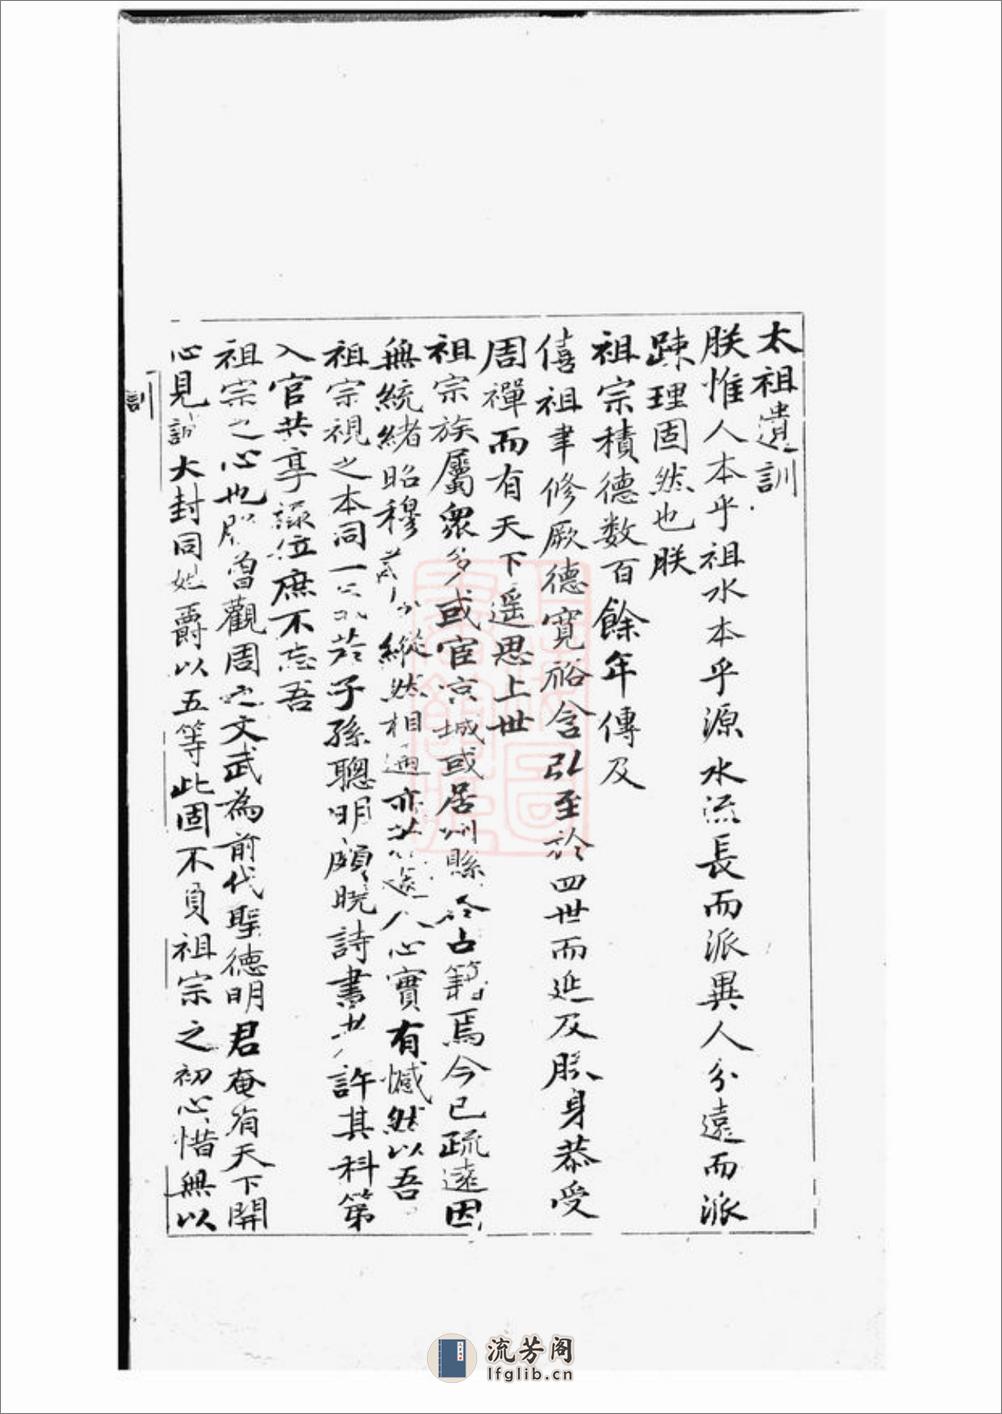 太祖遺訓
朕惟人本乎祖水本乎源水流長而派異人分遠而派
踈理固然也朕
祖宗積德数百餘年傳及
僖祖聿修厥德寛裕含弘至於四世而延及朕身恭受
周禪而有天下遥思上世
祖宗族屬衆多或宦京城或居州縣今占籍焉今已疏遠因
無統緒昭穆縱然相遇亦人心實有憾然以吾
祖宗視之本同一子孫聰明頗曉詩書許其科第
入官共享禄位庶不忘吾
祖宗之心也曽觀周之文武為前代聖德明君奄有天下開
心見誠大封同姓爵以五等此固不負祖宗之初心惜無以
訓
流芳阁
lfglib.cn